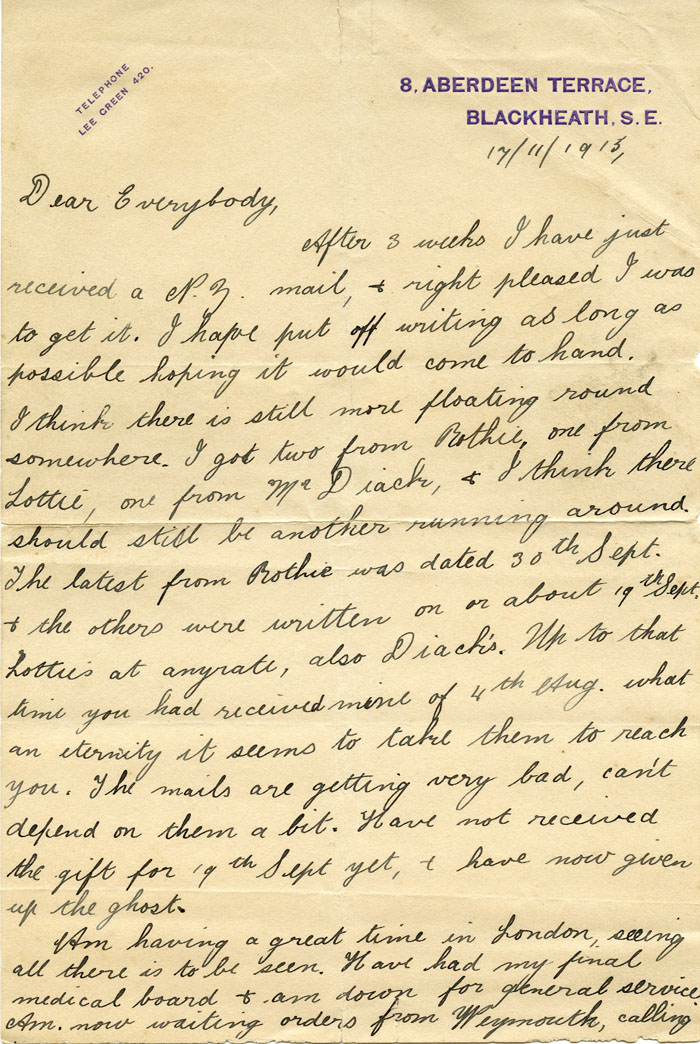 TELEPHONE
LEE GREEN 420.
8, ABERDEEN TERRACE,
BLACKHEATH, S.E.
17/11/1915,
Dear Everybody,
After 3 weeks I have just
received a N.Z. mail, & right pleased I was
to get it. I have put off writing as long as
possible hoping it would come to hand.
I think there is still more floating round
somewhere. I got two from Rothie, one from
Lottie, one from Mr Diack, & I think there
should still be another running around.
The latest from Rothie was dated 30th Sept.
& the others were written on or about 19th Sept,
Lottie's at anyrate, also Diack's. Up to that
time you had received mine of 4th Aug. what
an eternity it seems to take them to reach
you. The mails are getting very bad, can't
depend on them a bit. Have not received
the gift for 19th Sept yet, & have now given
up the ghost.
Am having a great time in London, seeing
all there is to be seen. Have had my final
medical board & am down for general service.
Am now waiting orders from Weymouth, calling